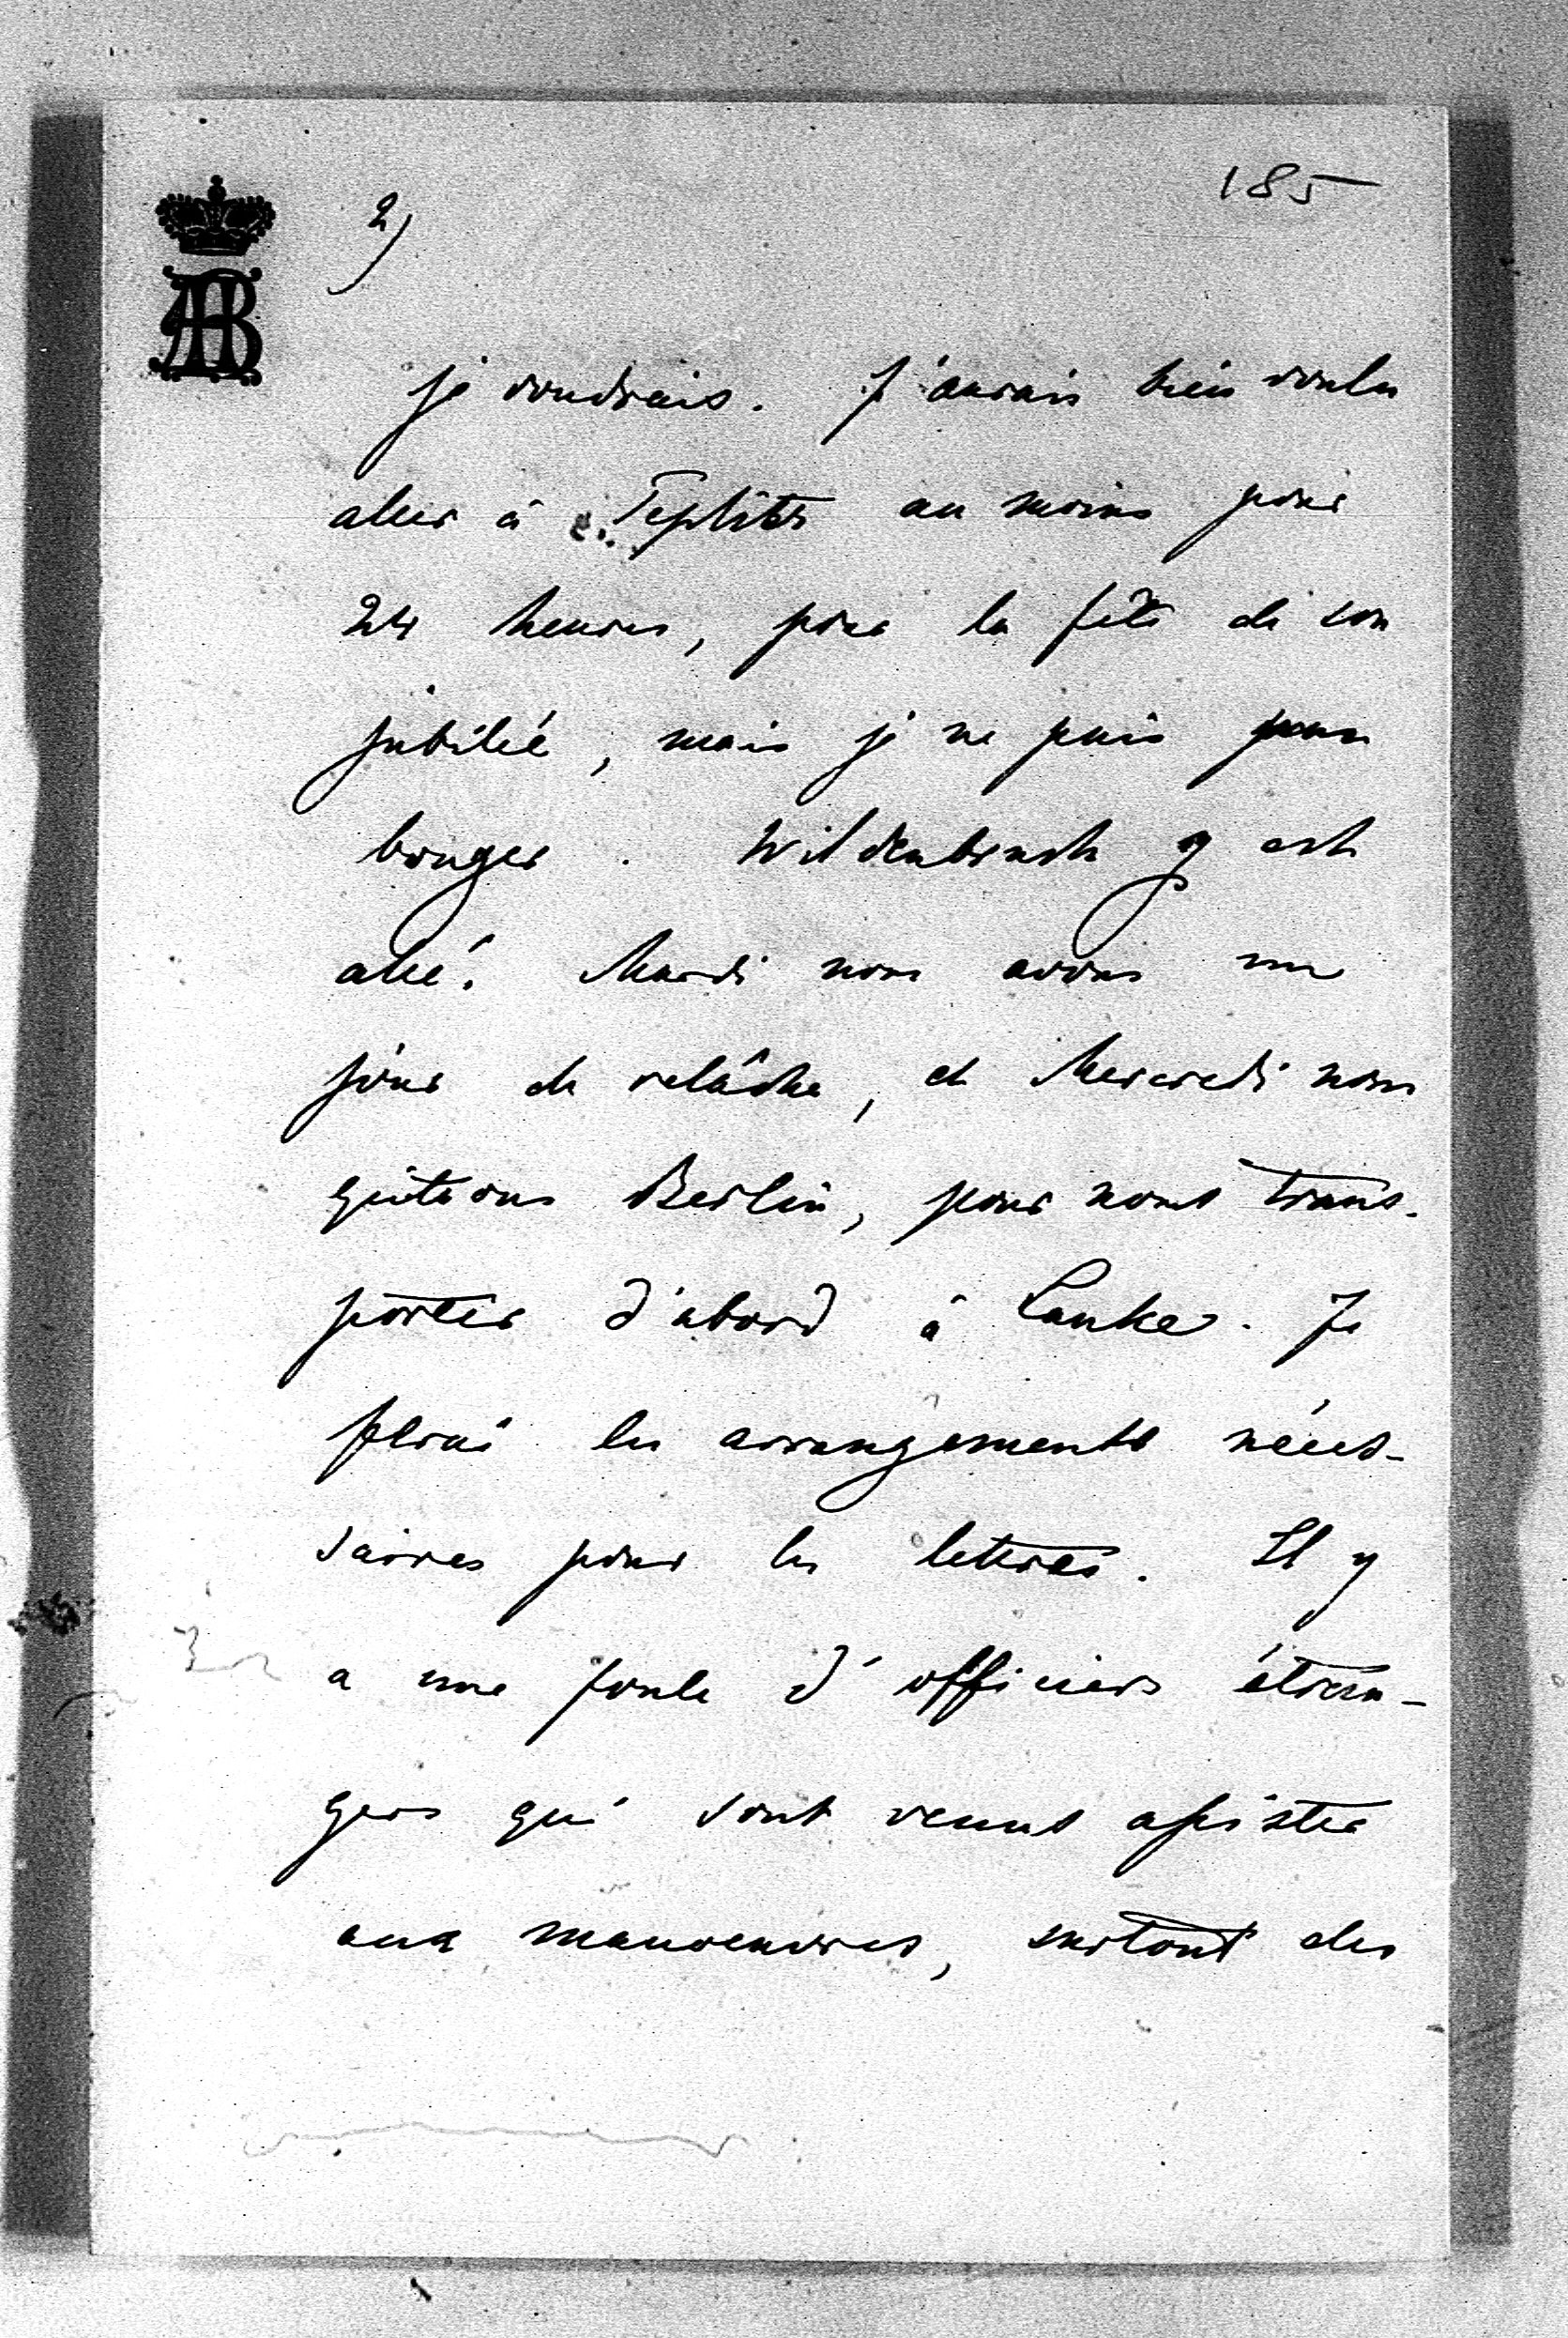 185
2)
AB
je voudrais. J'aurais bien voulu
aller à Teplitz au moins pour
24 heures, pour la fête de son
jubilé, mais je ne puis pas
bouger. Wildenbruch y est
allé. Mardi nous avons un
jour de relâche, et Mercredi nous
quittons Berlin, pour nous trans-
porter d'abord à Lanke. Je
ferai les arrangements néces-
saires pour les lettres. Il y
a une foule d'officiers étran-
gers qui sont venus assister
aux manoeuvres, surtout des